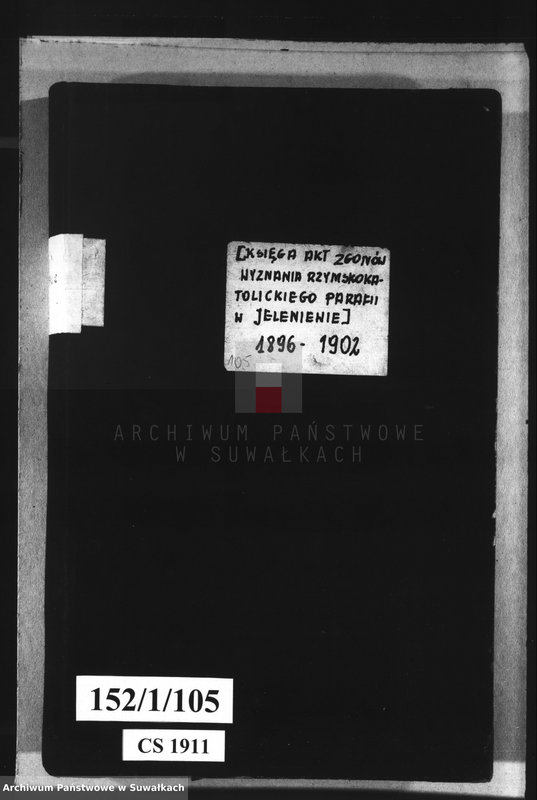 [KSIĘGA AKT ZGONÓW
WYZNANIA RZYMSKOKA-
TOLICKIEGO PARAFII
W JELENIENIE]
1896 - 1902
105
ARCHIWUM PAŃSTWOWE
W SUWAŁKACH
152/1/105
CS 1911
Archiwum Państwowe w Suwałkach